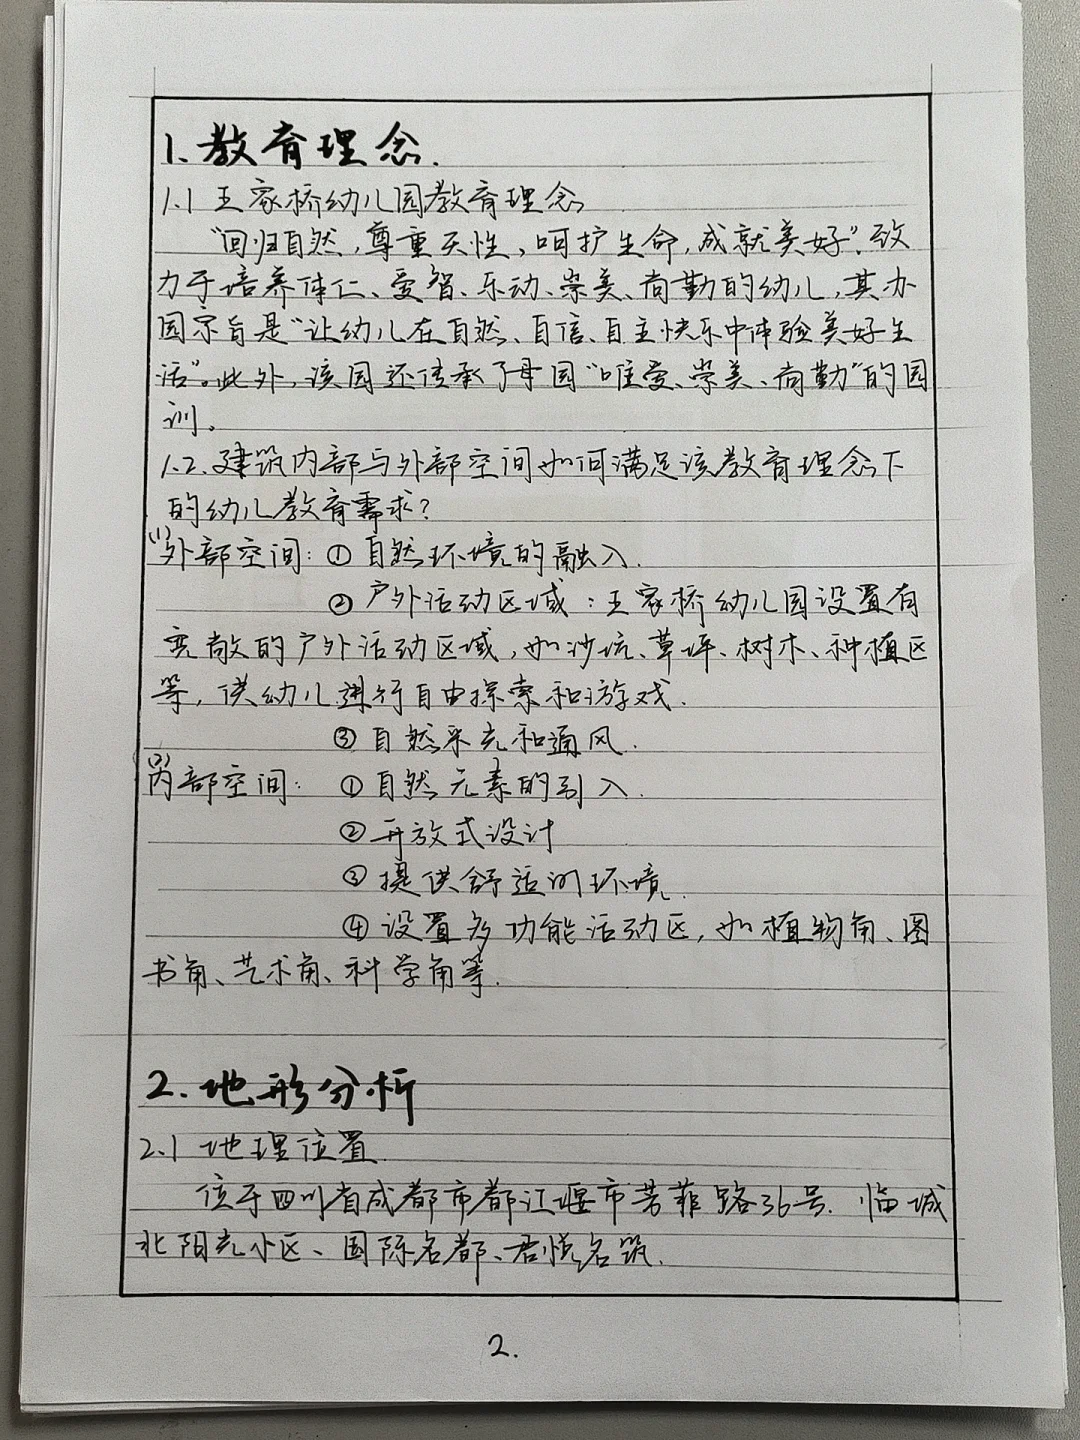 1.教育理念.
1.1 王家桥幼儿园教育理念
“回归自然,尊重天性,呵护生命,成就美好”.致
力于培养体仁、爱智、乐动、崇美、尚勤的幼儿,其办
园宗旨是“让幼儿在自然、自信、自主快乐中体验美好生
活”。此外,该园还传承了母园“唯爱、崇美、尚勤”的园
训。
1.2.建筑内部与外部空间如何满足该教育理念下
的幼儿教育需求?
(1)外部空间:①自然环境的融入.
②户外活动区域:王家桥幼儿园设置有
宽敞的户外活动区域,如沙坑、草坪、树木、种植区
等,供幼儿进行自由探索和游戏.
③自然采光和通风.
(2)内部空间:①自然元素的引入.
②开放式设计
③提供舒适的环境.
④设置多功能活动区,如植物角、图
书角、艺术角、科学角等.
2.地形分析
2.1 地理位置
位于四川省成都市都江堰市芳菲路36号.临城
北阳光小区、国际名都、君悦名筑.
2.